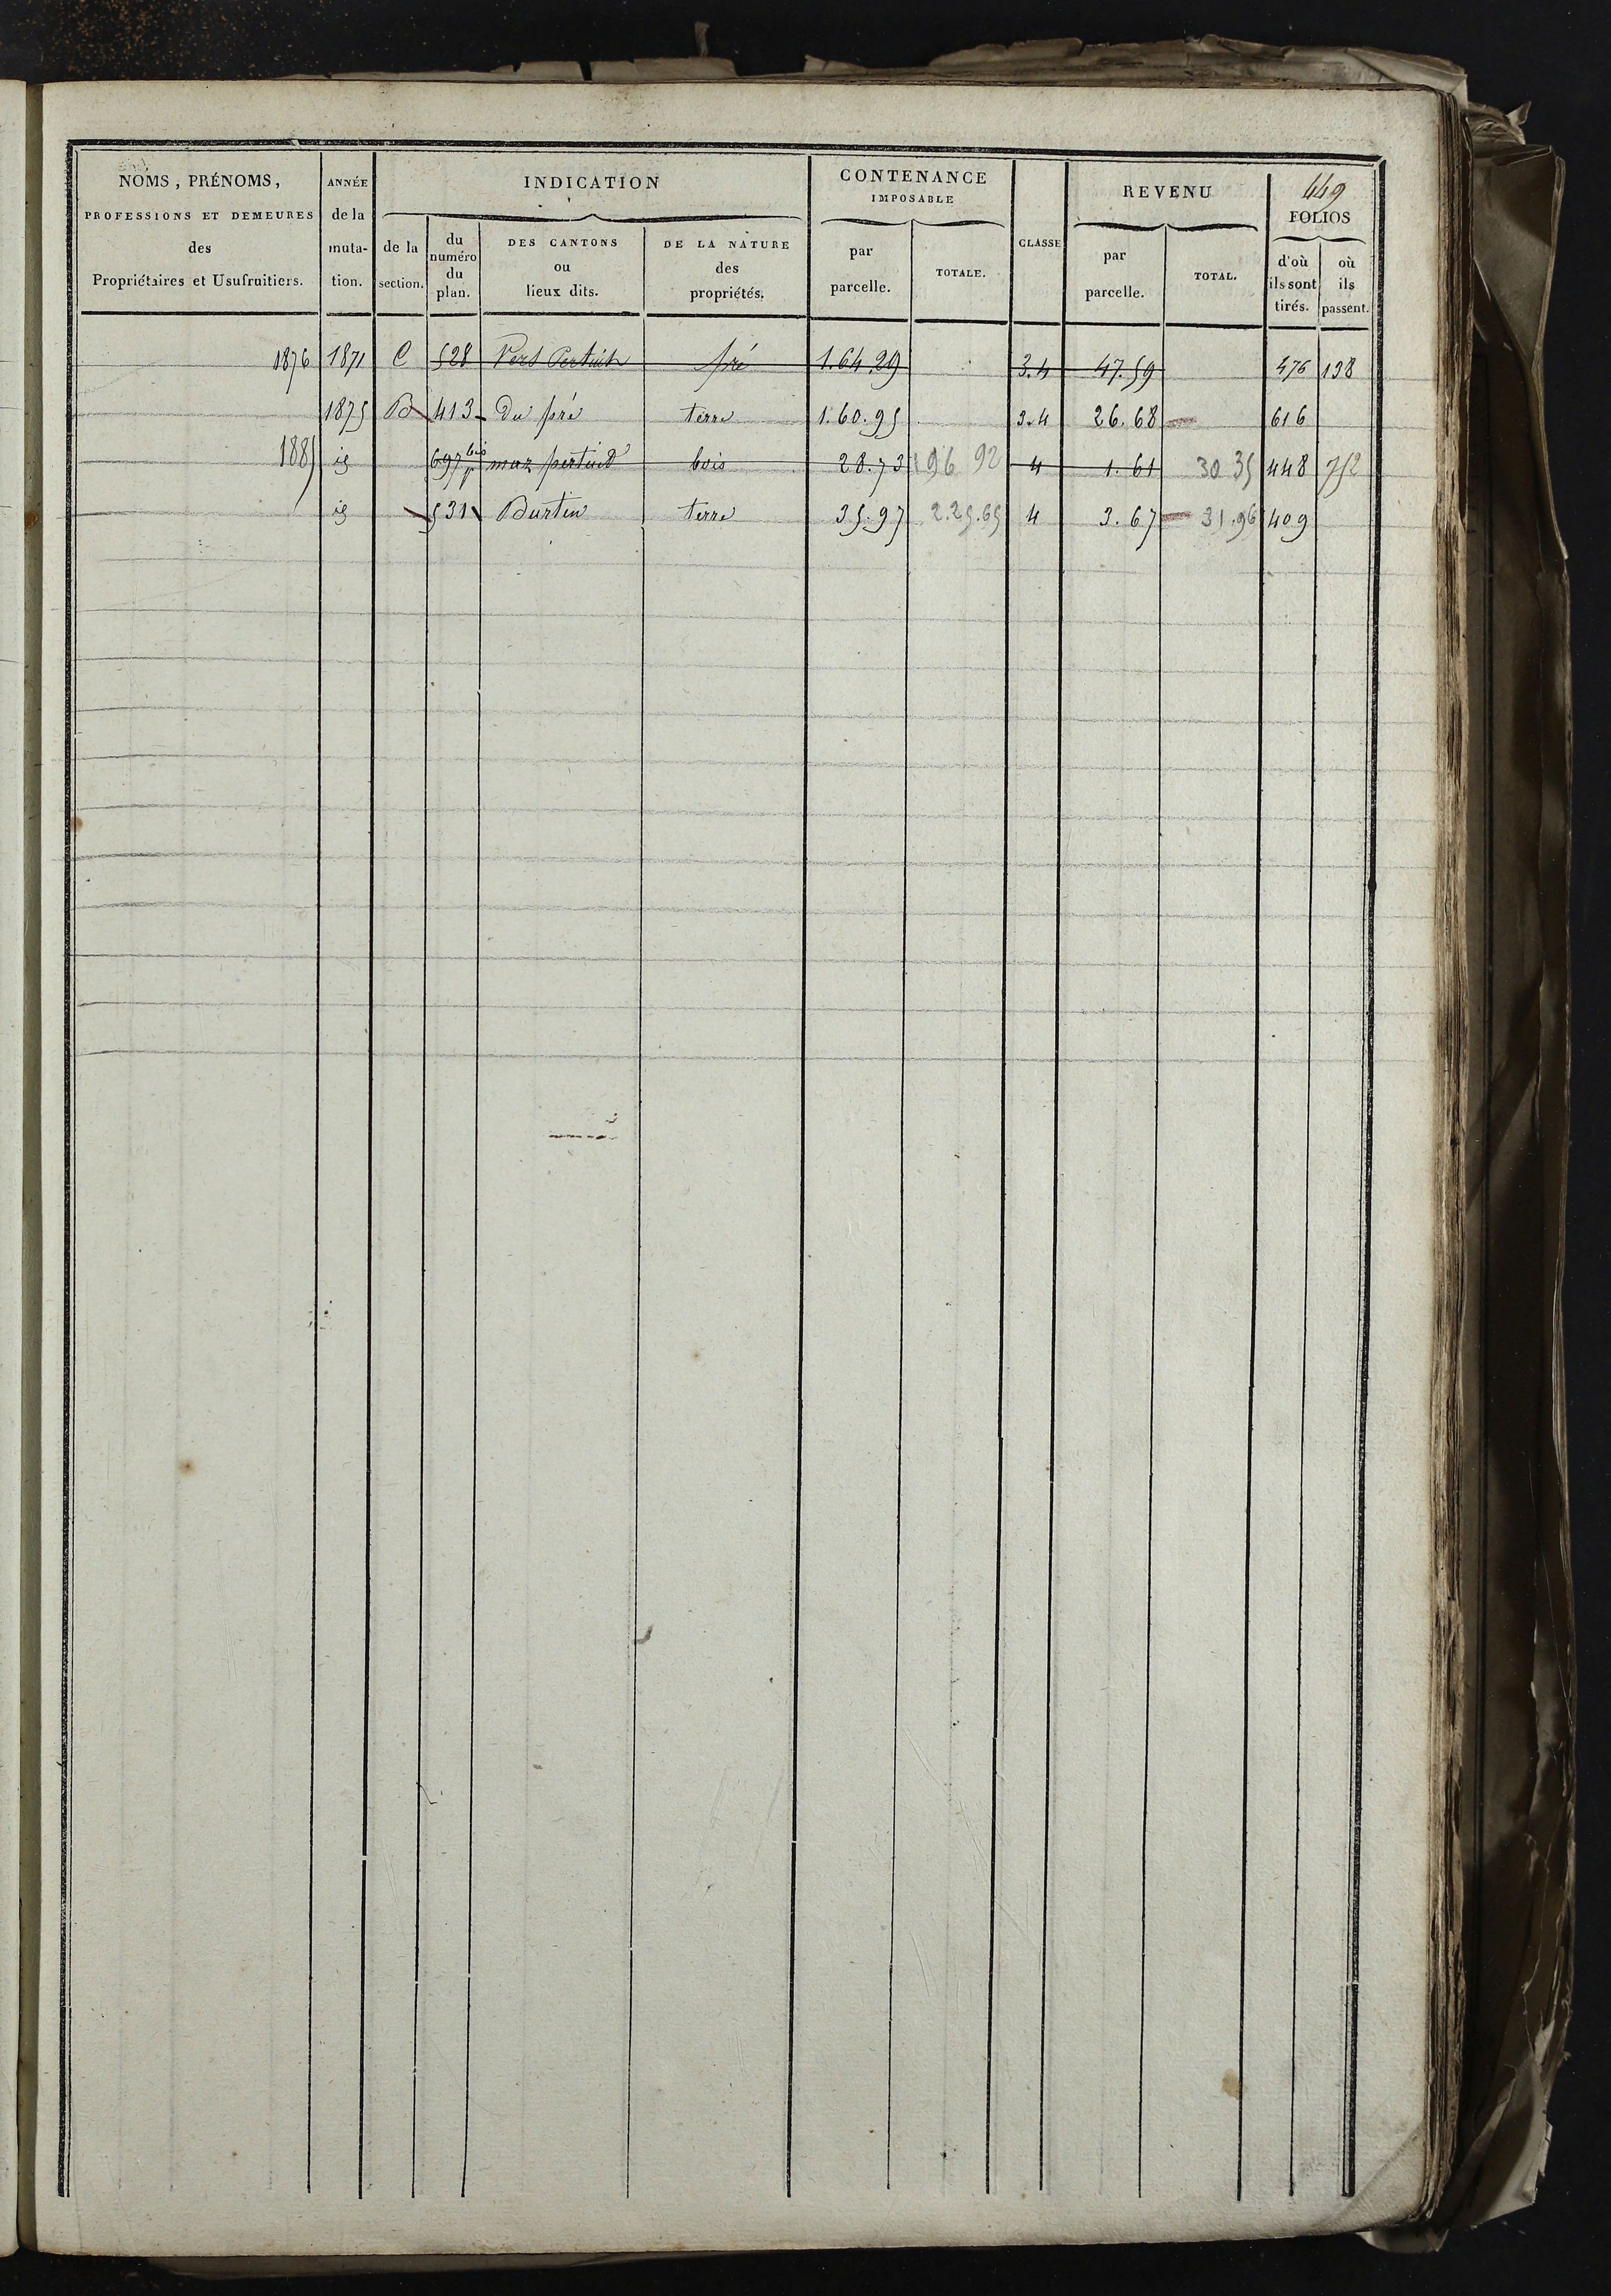 449
NOMS, PRÉNOMS, PROFESSIONS ET DEMEURES des Propriétaires et Usufruitiers.
ANNÉE de la muta-tion.
INDICATION
de la section.
du numéro du plan.
DES CANTONS ou lieux dits.
DE LA NATURE des propriétés.
CONTENANCE IMPOSABLE
par parcelle.
TOTALE.
CLASSE
REVENU
par parcelle.
TOTAL.
FOLIOS
d'où ils sont tirés.
où ils passent.
1876 1871 C 528 Vers Pertuit pré 1.64.29 3.4 47.59 476 138
1875 B 413 Du pré terre 1.60.95 3.4 26.68 616
1885 id 697 bis p maz pertuit bois 28.73 196 92 4 1.61 30 35 448 752
id 531 Burtin terre 35.97 2.25.65 4 3.67 31.96 409